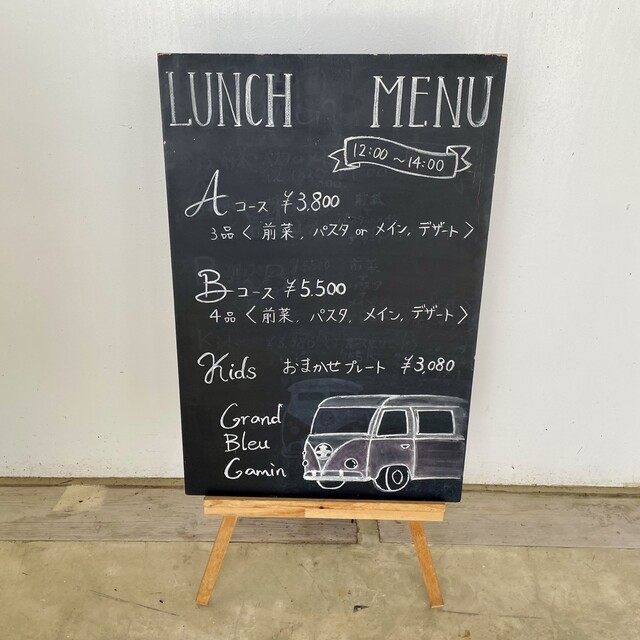 LUNCH MENU
12:00 ~14:00
A コース ¥3,800
3品〈前菜, パスタ or メイン, デザート〉
B コース ¥5.500
4品〈前菜, パスタ, メイン, デザート〉
Kids おまかせプレート ¥3,080
Grand
Bleu
Gamin